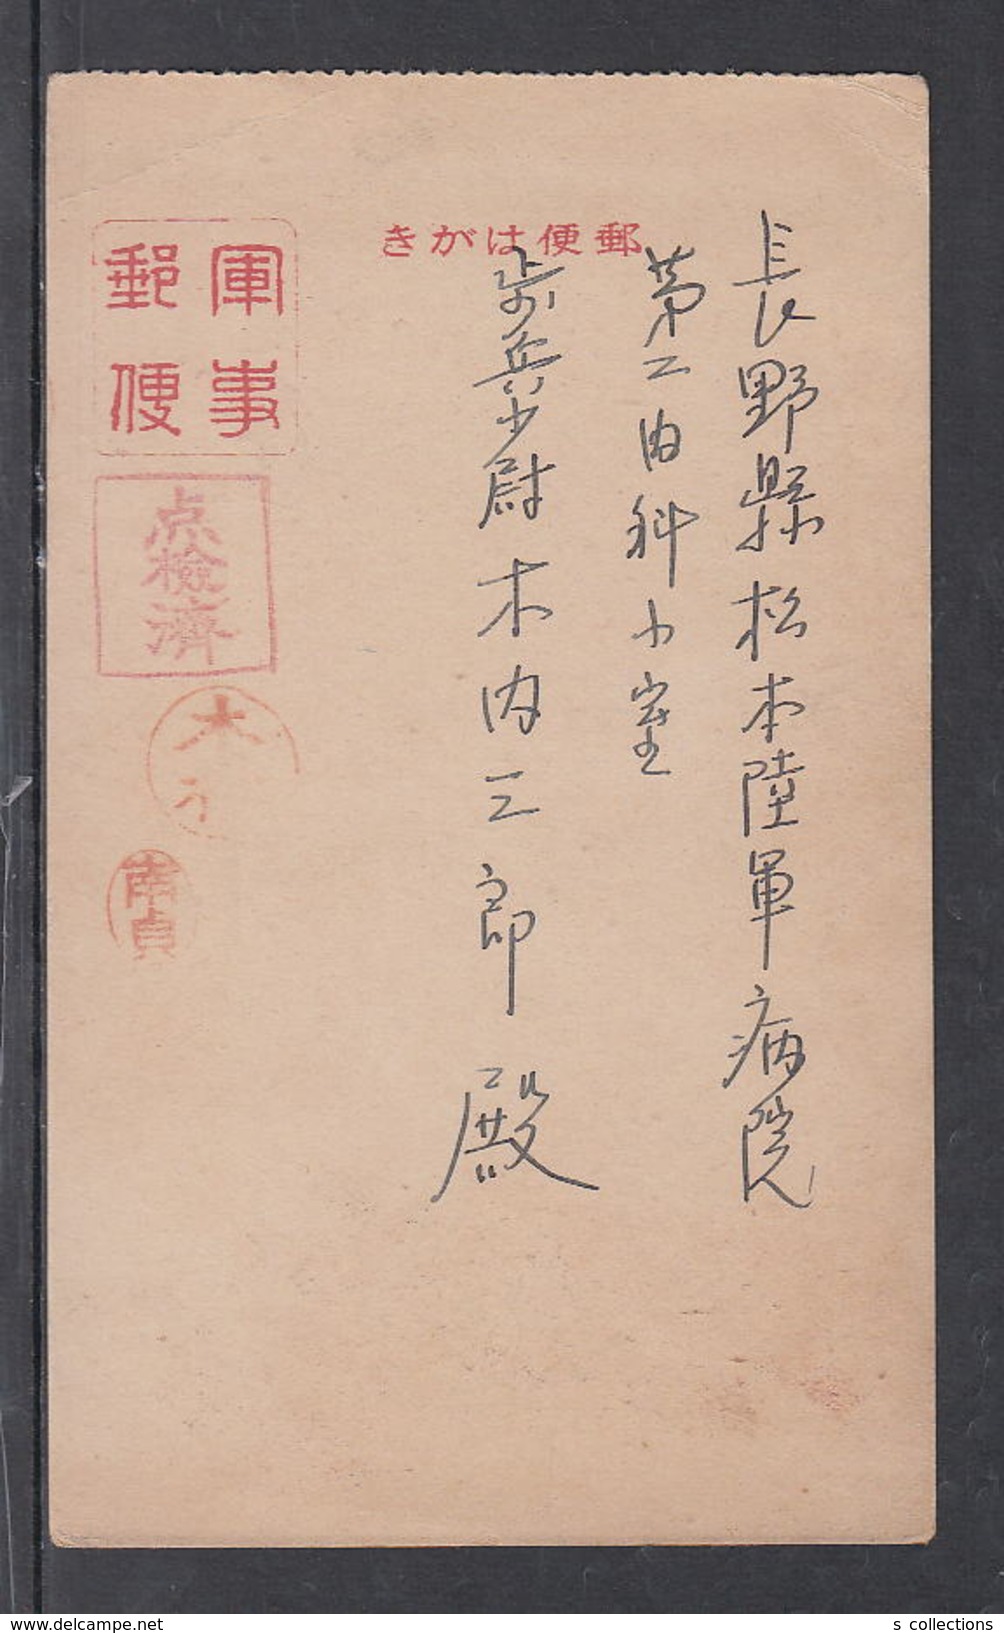 郵便はがき
長野縣松本陸軍病院
第二内科小室
歩兵少尉 木内三郎 殿
軍事
郵便
点檢濟
木
南貞
s collections